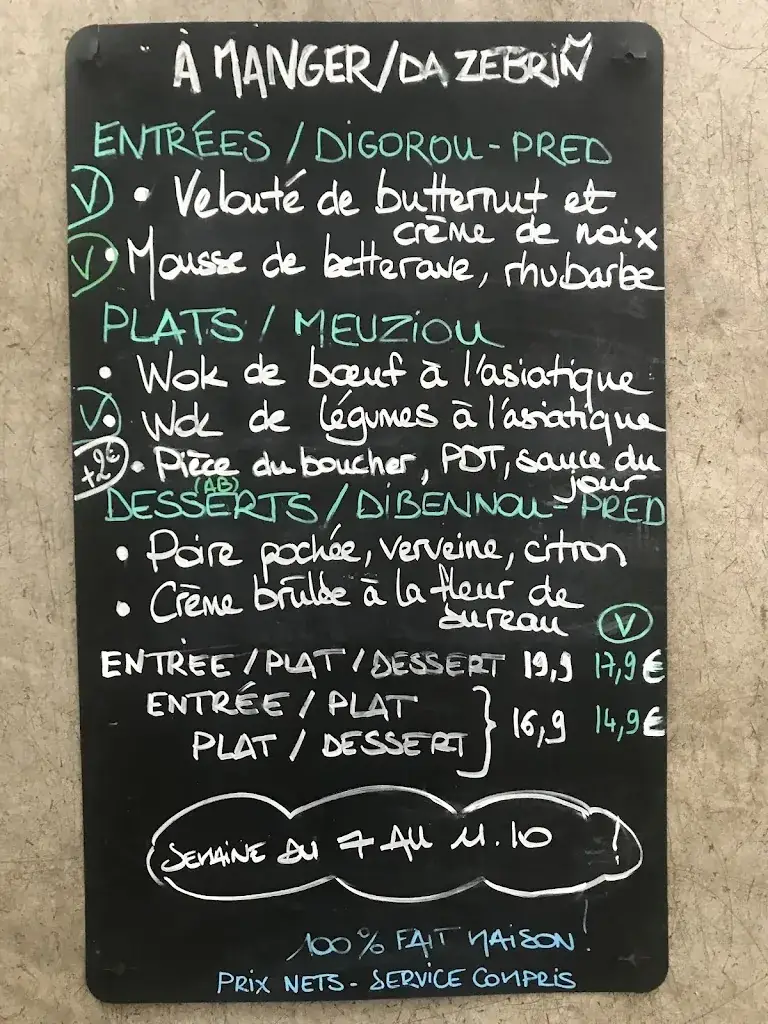 À MANGER/DA ZEBRIÑ
ENTRÉES / DIGOROU-PRED
V • Velouté de butternut et
crème de noix
V • Mousse de betterave, rhubarbe
PLATS / MEUZIOU
• Wok de bœuf à l'asiatique
V • Wok de légumes à l'asiatique
+2€ • Pièce du boucher, PDT, sauce du
jour
(AB)
DESSERTS / DIBENNOU-PRED
• Poire pochée, verveine, citron
• Crème brûlée à la fleur de
sureau
V
ENTRÉE/PLAT/DESSERT 19,9 17,9€
ENTRÉE/PLAT
PLAT/DESSERT } 16,9 14,9€
SEMAINE DU 7 AU 11.10 !
100% FAIT MAISON!
PRIX NETS - SERVICE COMPRIS